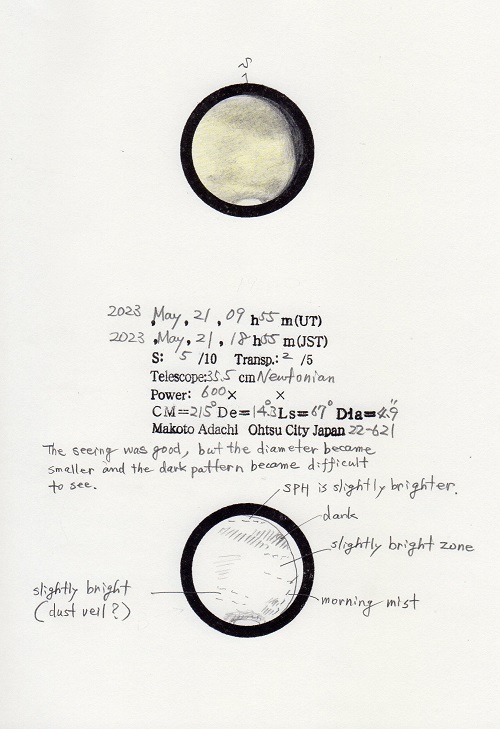 S
2023 May, 21, 09 h 55 m (UT)
2023 May, 21, 18 h 55 m (JST)
S: 5 /10 Transp.: 2 /5
Telescope: 35.5 cm Newtonian
Power: 600 × ×
CM=215° De=14.3 Ls=67° Dia=4.9"
Makoto Adachi Ohtsu City Japan 22-621
The seeing was good, but the diameter became
smaller and the dark pattern became difficult
to see.
SPH is slightly brighter.
dark
slightly bright zone
slightly bright
(dust veil?)
morning mist